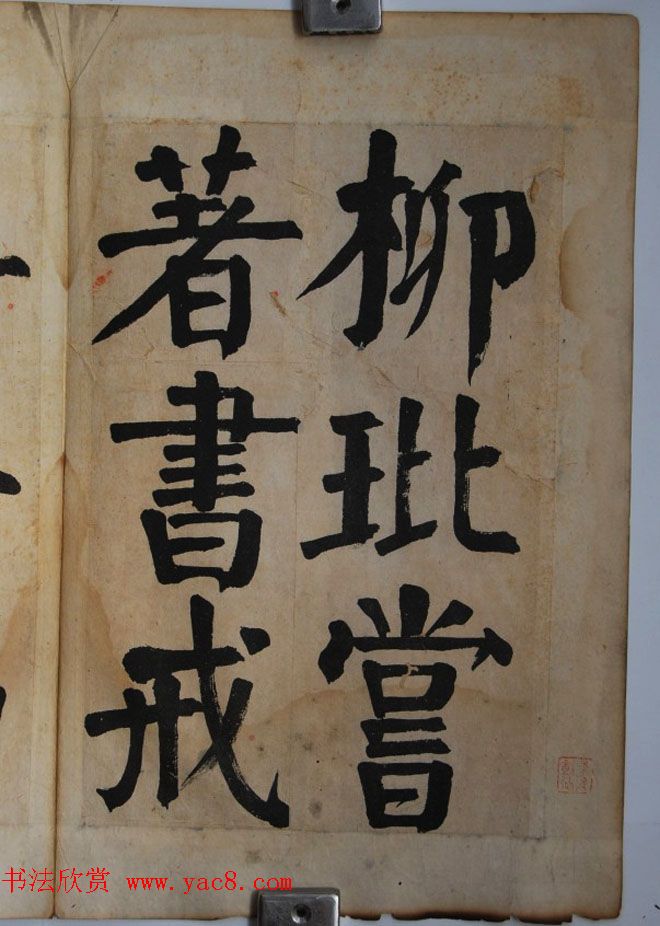 柳玭嘗
著書戒
书法欣赏 www.yac8.com